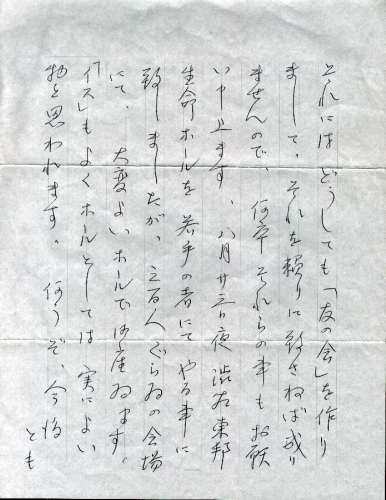 それにはどうしても「友の会」を作り
まして、それを頼りに致さねば成り
ませんので、何卒それらの事もお願
い申上ます、八月廿三日夜渋谷東邦
生命ホールを若手の者にてやる事に
致しましたが、三百人ぐらゐの会場
にて、大変よいホールで御座ゐます。
「イス」もよくホールとしては実によい
物と思われます。何うぞ、今後
とも